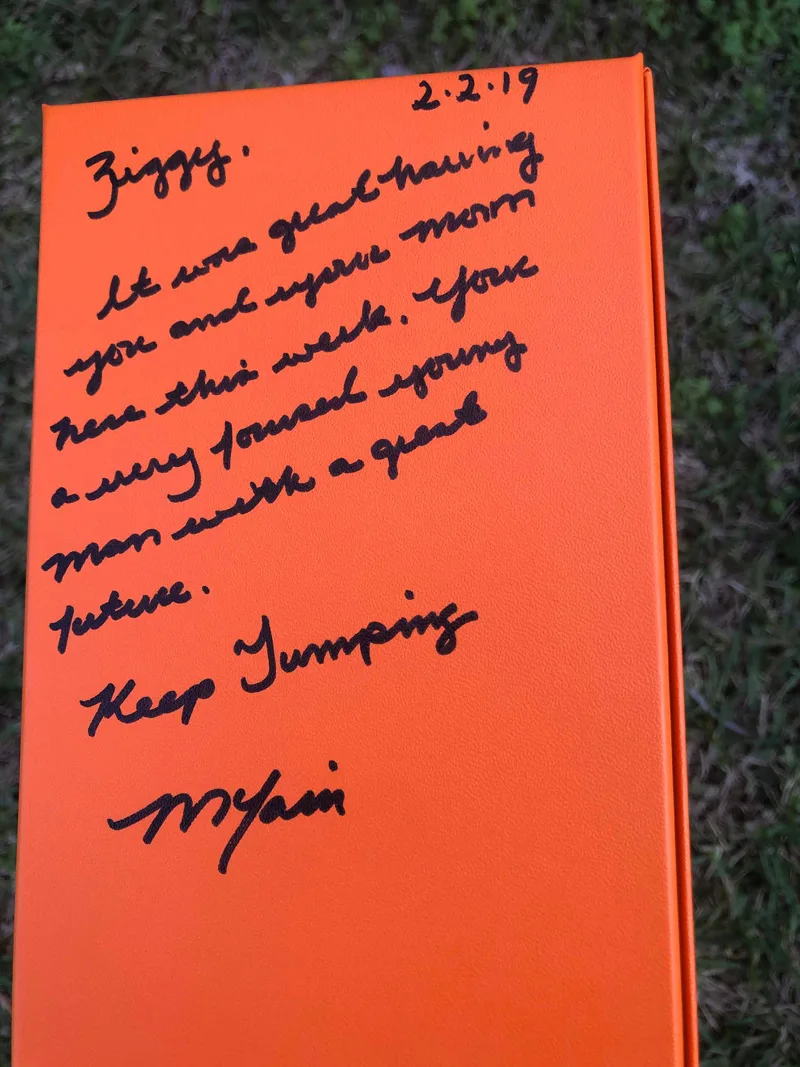 2.2.19
Ziggy,
It was great having
you and your mom
here this week. Your
a very focused young
man with a great
future.
Keep Jumping